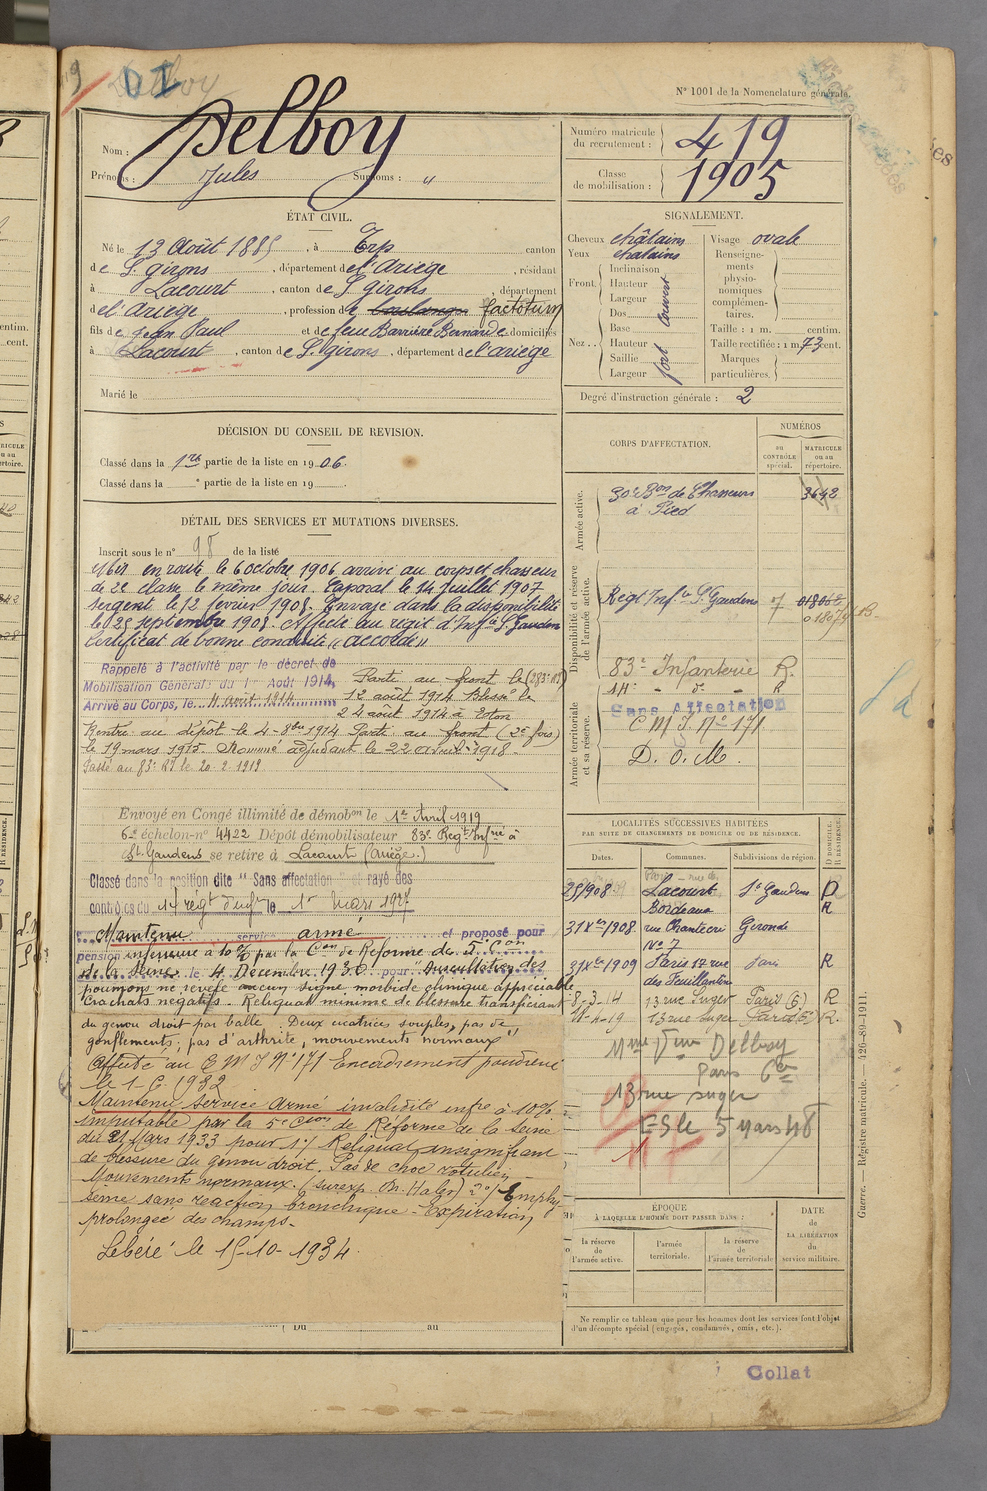 419
DI
Delboy
N° 1001 de la Nomenclature générale.
Nom : Delboy
Prénoms : Jules Surnoms : "
Numéro matricule du recrutement : 419
Classe de mobilisation : 1905
ÉTAT CIVIL.
Né le 13 Août 1885, à Erp canton
de St. Girons, département de l'Ariège, résidant
à Lacourt, canton de St Girons, département
de l'Ariège, profession de boulanger factotum
fils de Jean Paul et de feue Barrière Bernarde domiciliés
à Lacourt, canton de St. Girons, département de l'Ariège
Marié le
SIGNALEMENT.
Cheveux châtains
Yeux châtains
Front. Inclinaison
Hauteur
Largeur
couvert
Nez.. Dos
Base
Hauteur
Saillie
Largeur
fort
Visage ovale
Renseignements physionomiques complémentaires.
Taille : 1 m. centim.
Taille rectifiée : 1 m. 73 cent.
Marques particulières.
Degré d'instruction générale : 2
DÉCISION DU CONSEIL DE REVISION.
Classé dans la 1re partie de la liste en 1906.
Classé dans la e partie de la liste en 19
DÉTAIL DES SERVICES ET MUTATIONS DIVERSES.
Inscrit sous le n° 98 de la liste
Mis en route le 6 octobre 1906 arrivé au corps et chasseur
de 2e classe le même jour. Caporal le 14 Juillet 1907
Sergent le 12 février 1908. Envoyé dans la disponibilité
le 25 septembre 1908. Affecté au régit d'Infie St. Gaudens
Certificat de bonne conduite "accordé"
Rappelé à l'activité par le décret de
Mobilisation Générale du 1er Août 1914,
Arrivé au Corps, le 4 août 1914
Parti au front le (283e RI)
12 août 1914 Blessé le
24 août 1914 à Eton
Rentré au dépôt le 4-8bre 1914 Parti au front (2e fois)
le 19 mars 1915. Nommé adjudant le 22 avril 1918.
Passé au 83e RI le 20-2-1919
Envoyé en Congé illimité de démobon le 1er Avril 1919
6e échelon-n° 4422 Dépôt démobilisateur 83e Regt Infrie à
St. Gaudens se retire à Lacourt (Ariège.)
Classé dans la position dite "Sans affectation" et rayé des
contrôles du 14e régt d'infie le 1er mars 1927
Maintenu service armé et proposé pour
pension inférieure à 10% par la Con de Réforme de 5e Con
de la Seine le 4 Décembre 1930 pour Auscultation des
poumons ne révèle aucun signe morbide clinique appréciable
Crachats négatifs. Reliquat minime de blessure transfixiant
du genou droit par balle. Deux cicatrices souples, pas de
gonflements, pas d'arthrite, mouvements normaux"
Affecté au C M I N° 171 Encadrement
le 1-6-1932
Maintenu Service Armé invalidité infre à 10%
imputable par la 5e Cion de Réforme de la Seine
du 21 Mars 1933 pour 1°/ Reliquat insignifiant
de blessure du genou droit. Pas de choc rotulien
Mouvements normaux. 2°/ Emphy-
sème sans réaction bronchique - Expiration
prolongée des champs.
Libéré le 15-10-1934.
Du au
CORPS D'AFFECTATION.
NUMÉROS
au CONTRÔLE spécial.
MATRICULE ou au répertoire.
Armée active.
30e Bon de Chasseurs à Pied 3642
Disponibilité et réserve de l'armée active.
Régt Infie St. Gaudens
83e Infanterie R.
14e - do - R
Armée territoriale et sa réserve.
Sans Affectation
C M I N° 171
D. O. M.
LOCALITÉS SUCCESSIVES HABITÉES
PAR SUITE DE CHANGEMENTS DE DOMICILE OU DE RÉSIDENCE.
Dates. Communes. Subdivisions de région. D DOMICILE. R RÉSIDENCE.
Lacourt St Gaudens D
31 Xbre 1908 Bordeaux rue Chantecri N° 7 Gironde R
31 Xbre 1909 Paris 17 rue des Feuillantines Paris R
8-3-14 13 rue Suger Paris (6) R
18-4-19 13 rue Suger Paris 6 R.
Mme Vve Delboy
Paris 6e
13 rue Suger
ES le 5 Mars 48
ÉPOQUE
À LAQUELLE L'HOMME DOIT PASSER DANS :
la réserve de l'armée active.
l'armée territoriale.
la réserve de l'armée territoriale
DATE de LA LIBÉRATION du service militaire.
Ne remplir ce tableau que pour les hommes dont les services font l'objet
d'un décompte spécial (engagés, condamnés, omis, etc.).
Guerre. — Régistre matricule. — 426-89-1911.
Collat